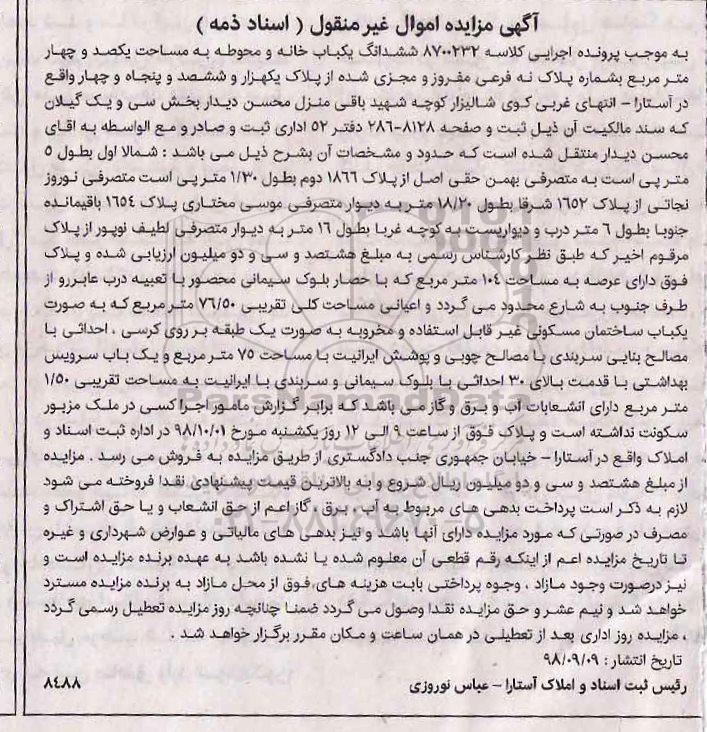 آگهی مزایده اموال غیر منقول ( اسناد ذمه )
به موجب پرونده اجرایی کلاسه ۸۷۰۰۲۳۲ ششدانگ یکباب خانه و محوطه به مساحت یکصد و چهار
متر مربع بشماره پلاک نه فرعی مفروز و مجزی شده از پلاک یکهزار و ششصد و پنجاه و چهار واقع
در آستارا – انتهای غربی کوی شالیزار کوچه شهید باقی منزل محسن دیدار بخش سی و یک گیلان
که سند مالکیت آن ذیل ثبت و صفحه ۸۱۲۸-۲۸۶ دفتر ۵۲ اداری ثبت و صادر و مع الواسطه به اقای
محسن دیدار منتقل شده است که حدود و مشخصات آن بشرح ذیل می باشد : شمالا اول بطول ۵
متر پی است به متصرفی بهمن حقی اصل از پلاک ۱۸۶۶ دوم بطول ۱/۳۰ متر پی است متصرفی نوروز
نجاتی از پلاک ۱۶۵۲ شرقا بطول ۱۸/۲۰ متر به دیوار متصرفی موسی مختاری پلاک ۱۶۵۴ باقیمانده
جنوبا بطول ۶ متر درب و دیواریست به کوچه غربا بطول ۱۶ متر به دیوار متصرفی لطیف نوپور از پلاک
مرقوم اخیر که طبق نظر کارشناس رسمی به مبلغ هشتصد و سی و دو میلیون ارزیابی شده و پلاک
فوق دارای عرصه به مساحت ۱۰۴ متر مربع که با حصار بلوک سیمانی محصور با تعبیه درب عابررو از
طرف جنوب به شارع محدود می گردد و اعیانی مساحت کلی تقریبی ۷۶/۵۰ متر مربع که به صورت
یکباب ساختمان مسکونی غیر قابل استفاده و مخروبه به صورت یک طبقه بر روی کرسی ، احداثی با
مصالح بنایی سربندی با مصالح چوبی و پوشش ایرانیت با مساحت ۷۵ متر مربع و یک باب سرویس
بهداشتی با قدمت بالای ۳۰ احداثی با بلوک سیمانی و سربندی با ایرانیت به مساحت تقریبی ۱/۵۰
متر مربع دارای انشعابات آب و برق و گاز می باشد که برابر گزارش مامور اجرا کسی در ملک مزبور
سکونت نداشته است و پلاک فوق از ساعت ۹ الی ۱۲ روز یکشنبه مورخ ۹۸/۱۰/۰۱ در اداره ثبت اسناد و
املاک واقع در آستارا – خیابان جمهوری جنب دادگستری از طریق مزایده به فروش می رسد . مزایده
از مبلغ هشتصد و سی و دو میلیون ریال شروع و به بالاترین قیمت پیشنهادی نقدا فروخته می شود
لازم به ذکر است پرداخت بدهی های مربوط به آب ، برق ، گاز اعم از حق انشعاب و یا حق اشتراک و
مصرف در صورتی که مورد مزایده دارای آنها باشد و نیز بدهی های مالیاتی و عوارض شهرداری و غیره
تا تاریخ مزایده اعم از اینکه رقم قطعی آن معلوم شده یا نشده باشد به عهده برنده مزایده است و
نیز درصورت وجود مازاد ، وجوه پرداختی بابت هزینه های فوق از محل مازاد به برنده مزایده مسترد
خواهد شد و نیم عشر و حق مزایده نقدا وصول می گردد ضمنا چنانچه روز مزایده تعطیل رسمی گردد
، مزایده روز اداری بعد از تعطیلی در همان ساعت و مکان مقرر برگزار خواهد شد .
تاریخ انتشار : ۹۸/۰۹/۰۹
رئیس ثبت اسناد و املاک آستارا – عباس نوروزی ۸۴۸۸
ParsNamadData